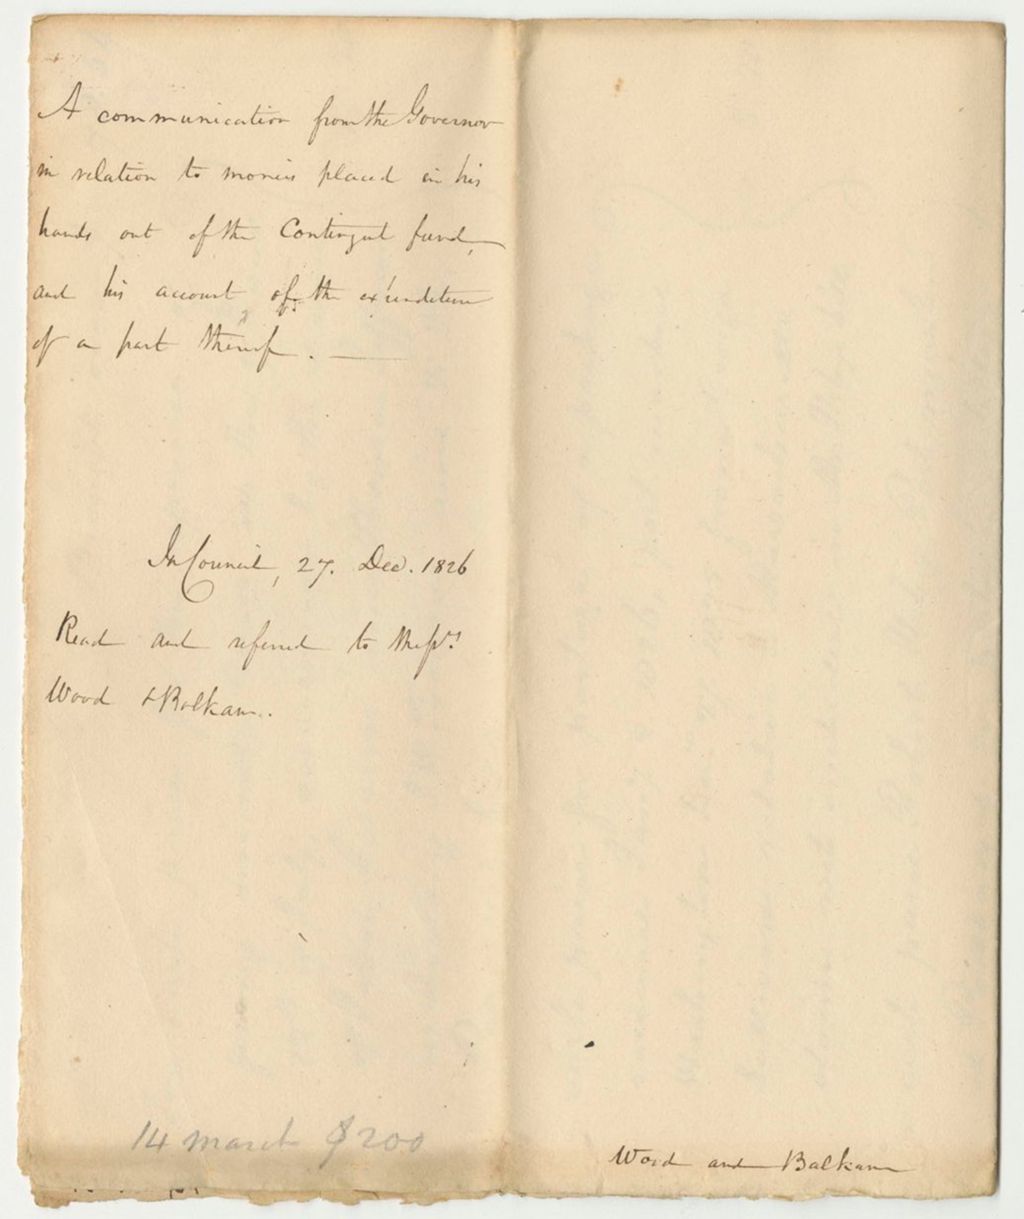 A communication from the Governor
in relation to monies placed in his
hands out of the Contingent fund,
and his account of the expenditure
of a part thereof.
In Council, 27. Dec. 1826
Read and referred to Messrs
Wood & Balkam.
14 march $200
Wood and Balkam